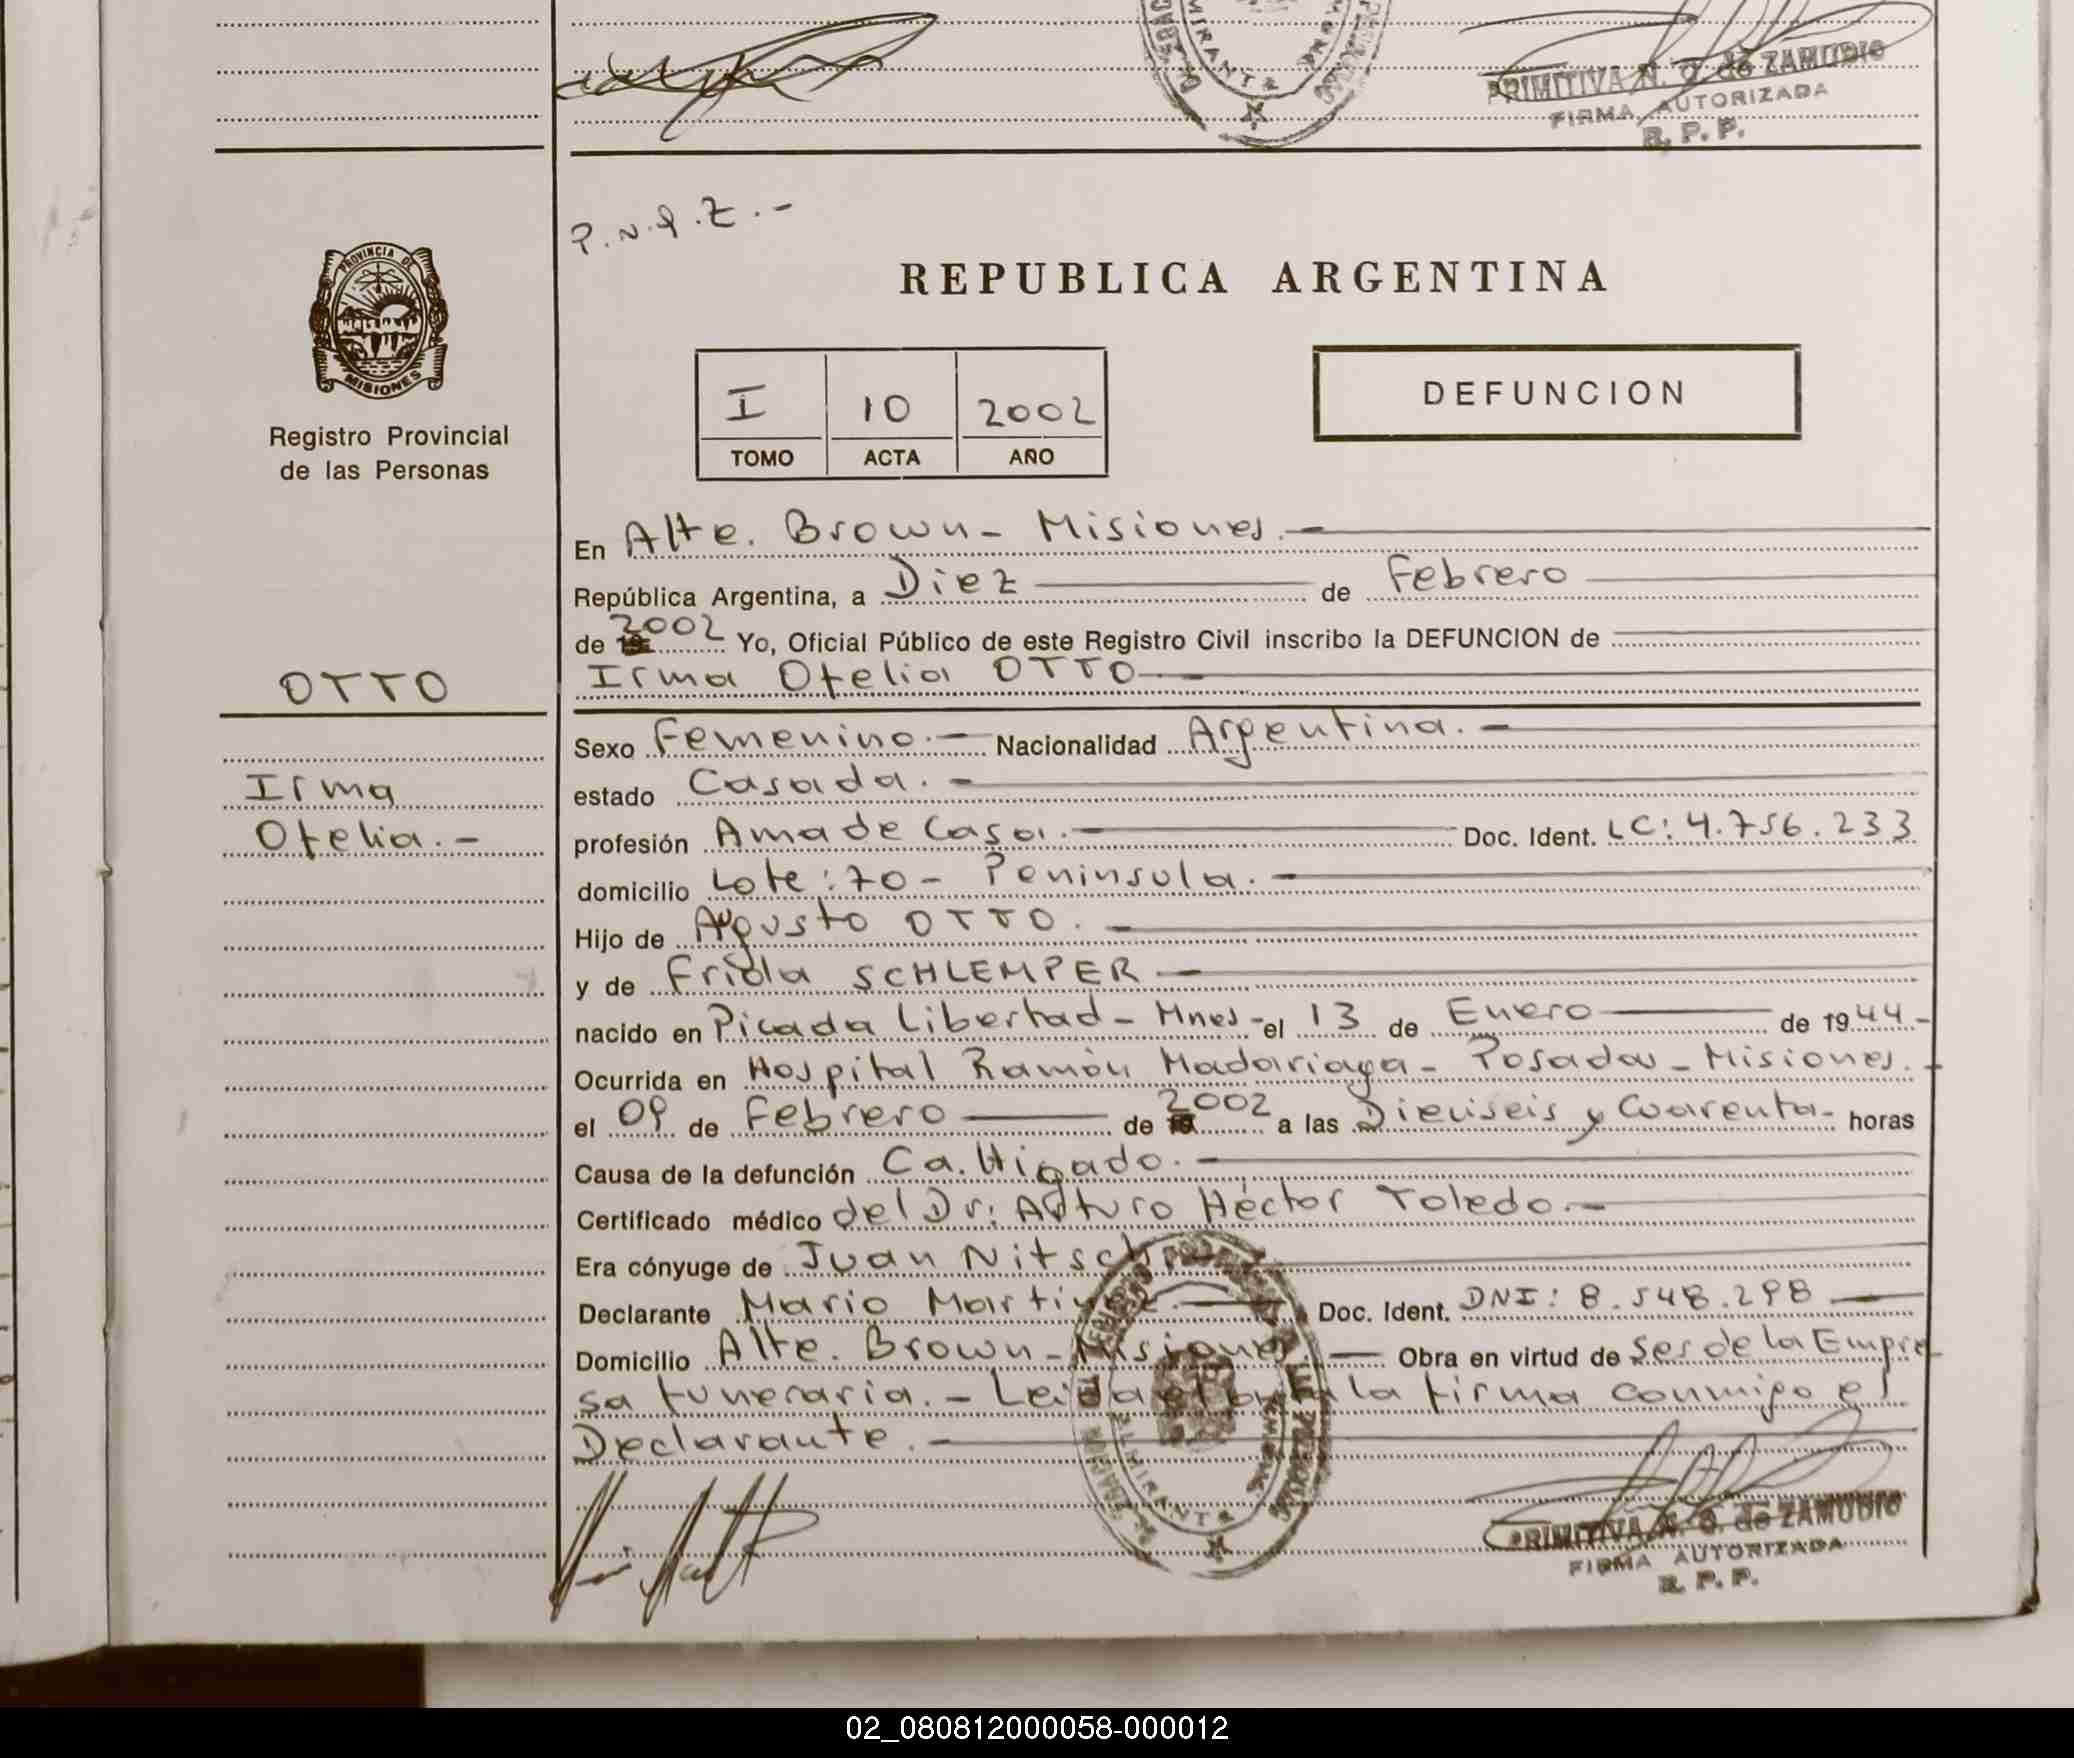 PRIMITIVA N. O. de ZAMUDIO
FIRMA AUTORIZADA
R. P. P.
PROVINCIA DE
MISIONES
Registro Provincial
de las Personas
REPUBLICA ARGENTINA
I 10 2002
TOMO ACTA AÑO
DEFUNCION
En Alte. Brown - Misiones. -
República Argentina, a Diez de Febrero
de 2002 Yo, Oficial Público de este Registro Civil inscribo la DEFUNCION de
Irma Otelia OTTO
OTTO
Irma
Otelia. -
Sexo Femenino. - Nacionalidad Argentina. -
estado Casada. -
profesión Ama de Casa. - Doc. Ident. LC: 4.756.233
domicilio Lote: 70 - Peninsula. -
Hijo de Augusto OTTO. -
y de Frida SCHLEMPER -
nacido en Picada Libertad - Mnes - el 13 de Enero de 1944 -
Ocurrida en Hospital Ramón Madariaga - Posadas - Misiones. -
el 09 de Febrero de 2002 a las Dieciseis y Cuarenta - horas
Causa de la defunción Ca. Higado. -
Certificado médico del Dr: Arturo Héctor Toledo. -
Era cónyuge de Juan
Declarante Mario Martinez. - Doc. Ident. DNI: 8.548.298
Domicilio Alte. Brown - Misiones. - Obra en virtud de Ser de la Empre
sa funeraria. - Leida el acta la firma conmigo el
Declarante. -
PRIMITIVA N. O. de ZAMUDIO
FIRMA AUTORIZADA
R. P. P.
02_080812000058-000012